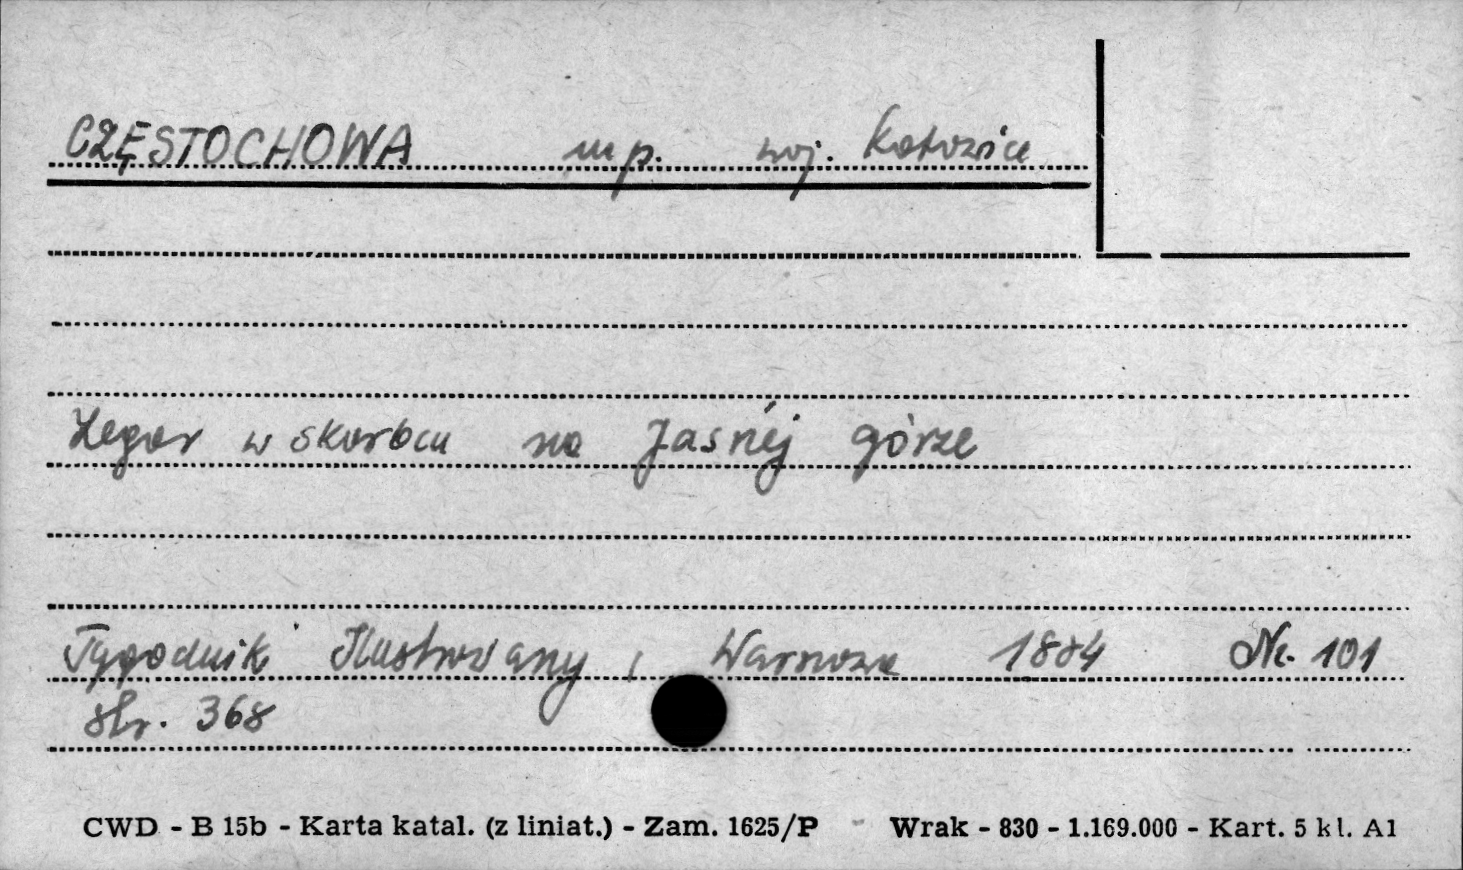 CZĘSTOCHOWA mp. woj. Katowice
Zegar w skarbcu na Jasnéj górze
Tygodnik Ilustrowany, Warszawa 1884 Nr. 101
str. 368
CWD - B 15b - Karta katal. (z liniat.) - Zam. 1625/P Wrak - 830 - 1.169.000 - Kart. 5 kl. A1